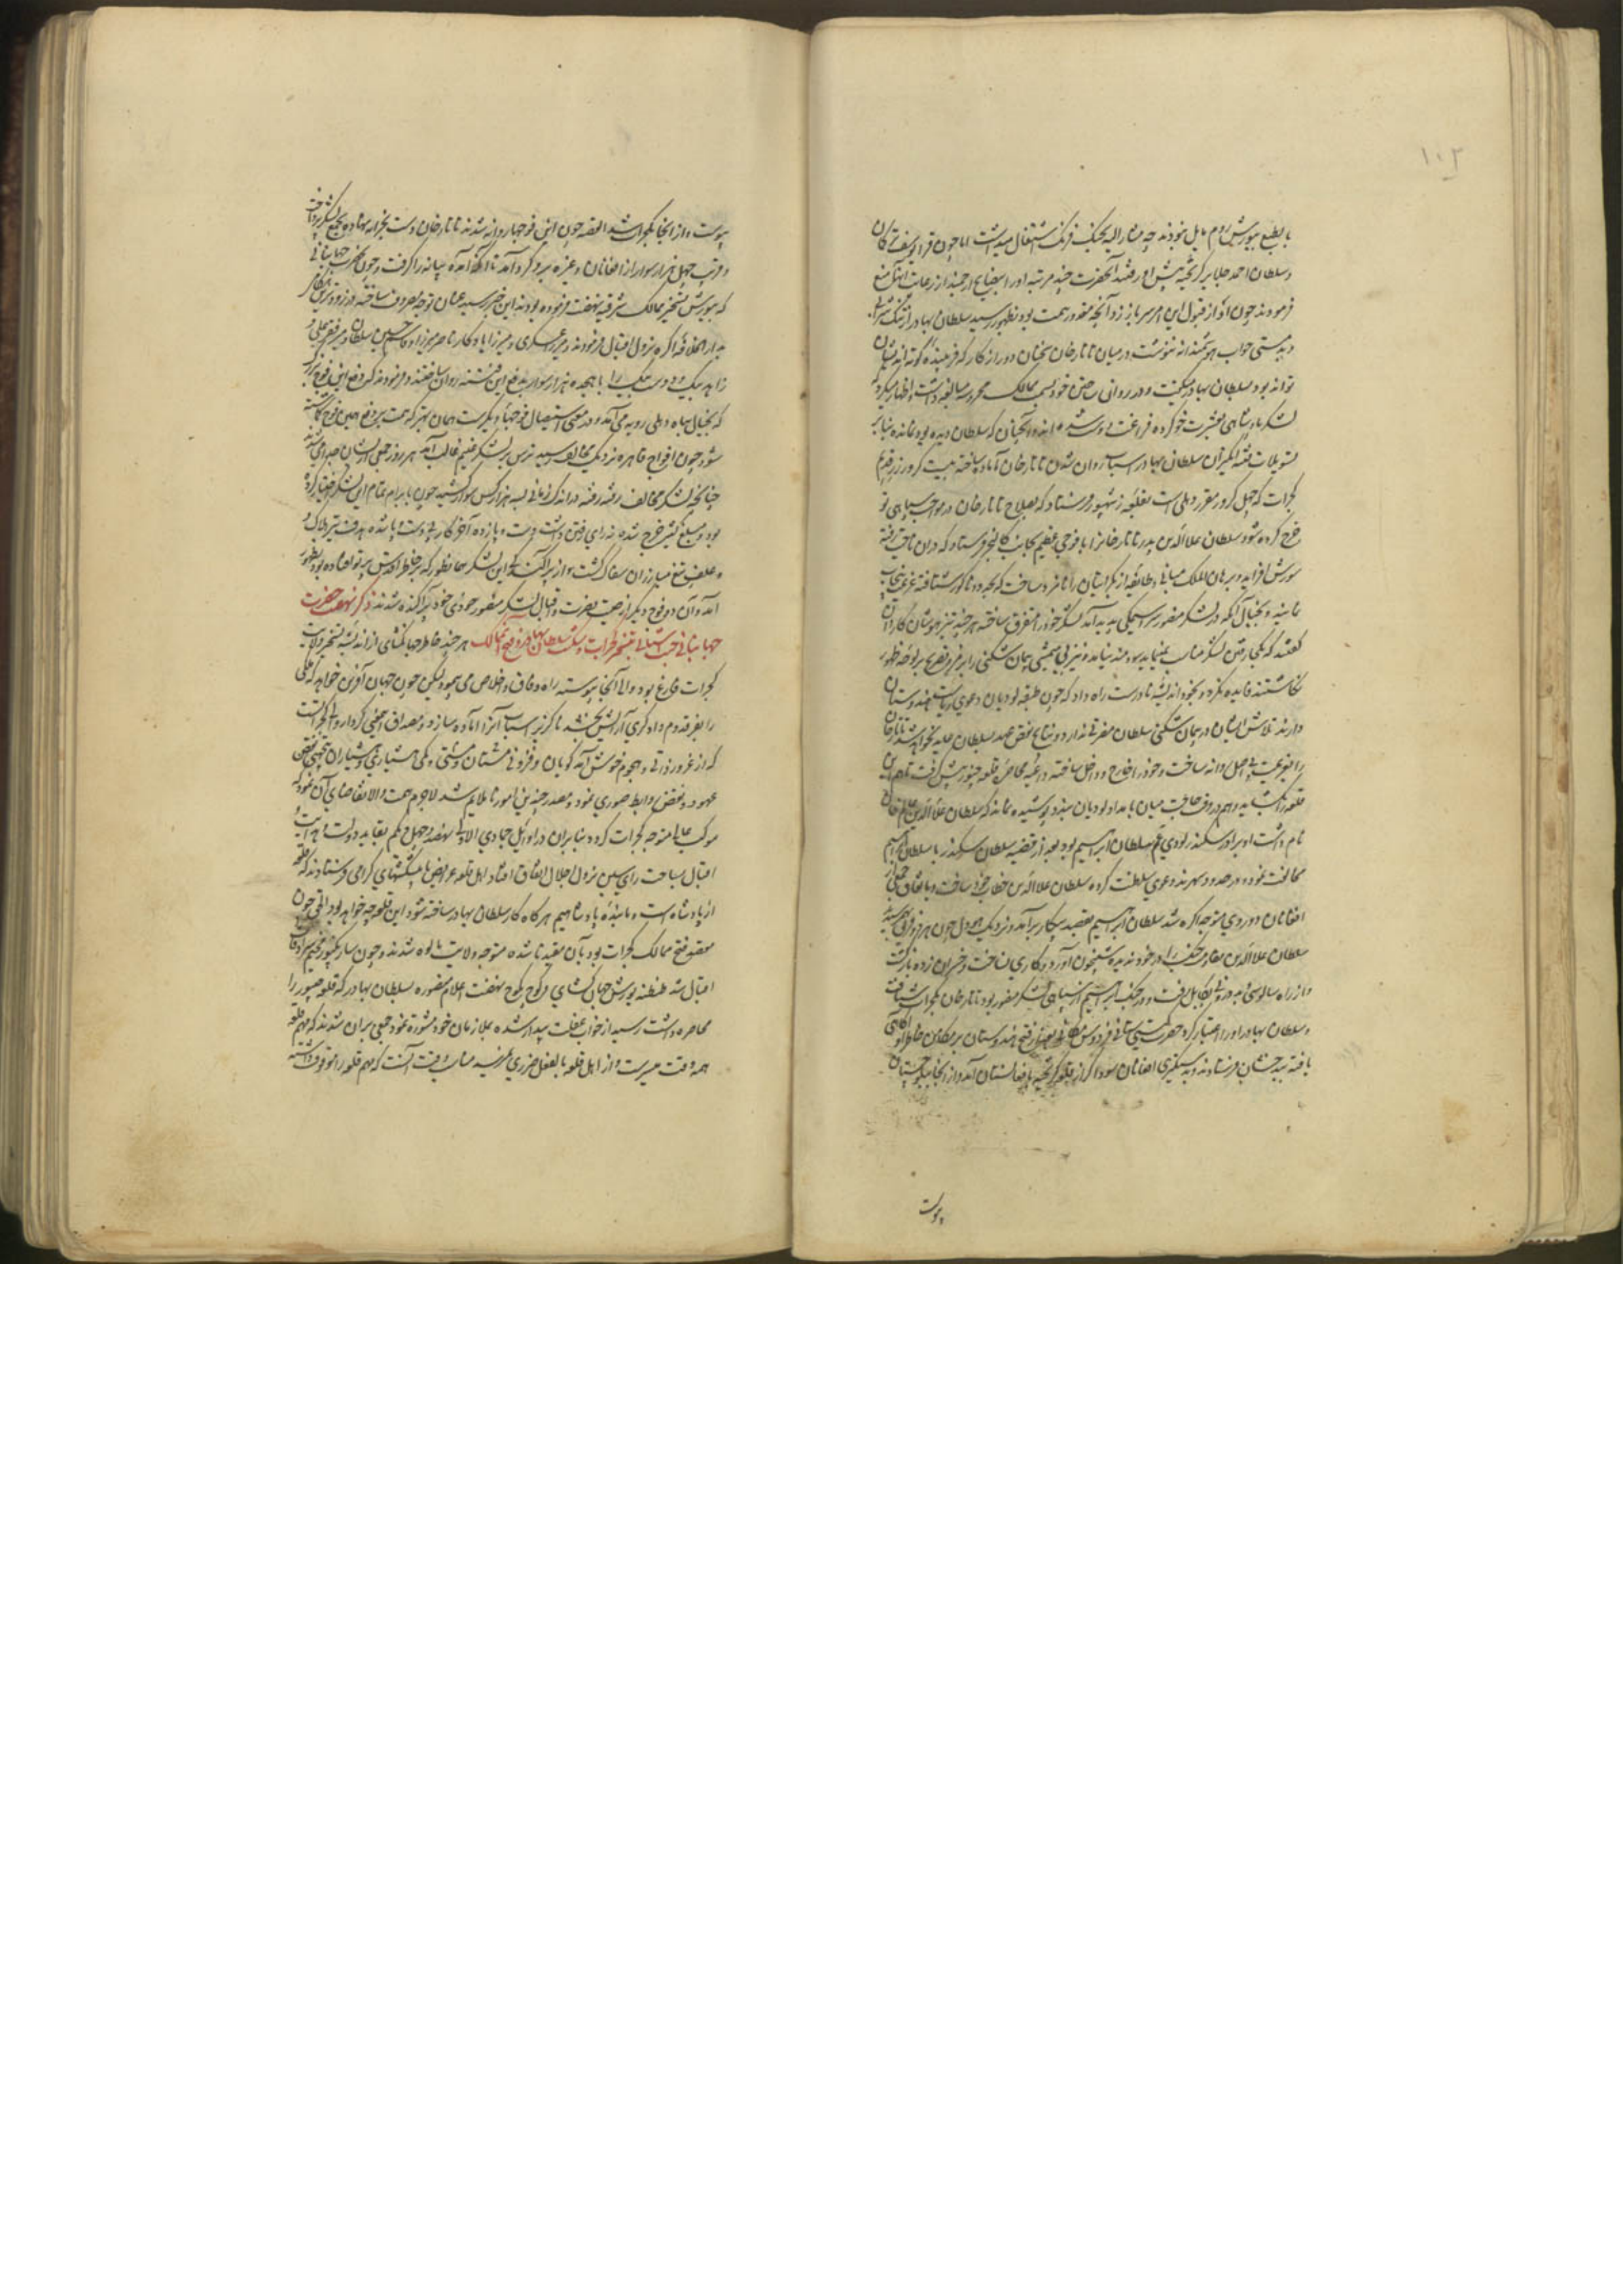 ۱۰۲
بالطبع بیورش روم مایل نبودند چه مشار الیه بجنک فرنک اشتغال میداشت اما چون قرا یوسف ترکمان
و سلطان احمد جلایر کریخته پیش او رفتند آنحضرت چند مرتبه او را بنصایح ارجمند از رعایت آنها منع
فرمودند چون او از قبول این امر سر باز زد آنچه مقدور همت بود بظهور رسید سلطان بهادر از تنک شرابی
و بدمستی جواب هوشمندانه ننوشت درمیان تاتار خان سخنان دور از کار که فریبنده کوته اندیشان
تواند بود بسلطان بهادر میکفت و در روانی ساختن خود بسمت ممالک محروسه مبالغه داشت و اظهار میکرد که
لشکر پادشاهی بعشرت خو کرده فراغت دوست شده اند و آنچنان که سلطان دیده بود نمانده بنا بر
تسویلات فتنه انکیزان سلطان بهادر اسباب روان شدن تاتار خان آماده ساخته بیست کرور زر قدیم
کجرات که چهل کرور مقرر دهلی است بقلعه رنتهپور فرستاد که بصلاح تاتار خان در مواجب سپاهی نو
خرج کرده شود و سلطان علاءالدین پدر تاتار خانرا با فوجی عظیم بجانب کالنجر فرستاد که دران ناحیت رفته
شورش افزاید و برهان الملک بنیانی و طایفه از کجراتیان را نامزد ساخت که بحدود ناکور شتافته عزم پنجاب
نمایند و بخیال آنکه در لشکر منصور سراسیمکی پدید آمد لشکر خود را متفرق ساخته هر چند تیز هوشان کاردان
کفتند که یکجا رفتن لشکر مناسب مینماید سودمند نیامد و نیز از بی تمیزی پیمان شکنی را بر وجه ظهور
نکاشتند فایده نکرد و بخود اندیشه نادرست راه داد که چون طبقه لودیان دعوی ریاست هندوستان
دارند تلاش ایشان در پیمان شکنی سلطان مضرتی ندارد و نتایج نقض عهد بسلطان عاید نخواهد شد تاتار خان
را بنوعیت بی اصل روانه ساخت و خود داخل ساخته داعیه محاصره قلعه چیتور پیش کرفت تا هم این
قلعه را بکشاید و هم در وقت حاجت میان بامداد لودیان بندد پوشیده نماند که سلطان علاءالدین عالم خان
نام داشت او برادر سکندر لودی و عم سلطان ابراهیم بود بعد از قضیه سلطان سکندر با سلطان ابراهیم
مخالفت نموده در حدود سهرند دعوی سلطنت کرده سلطان علاءالدین خطاب خود ساخت و باتفاق جمعی از
افغانان دوروی متوجه اکره شد سلطان ابراهیم بقصد پیکار برآمد و نزدیک هودل چون هر دو فریق رسیدند
سلطان علاءالدین مقاومت جنک را در خود ندیده شبیخون آورد و کاری نساخت و خسران زده بازکشت
و از راه سالوسی بکابل رفت و در جنک ابراهیم از سپاهی لشکر منصور بود تاتار خان بکجرات شتافت
و سلطان بهادر او را اعتبار کرد حضرت کیتی ستانی فردوس مکانی بعد از فتح هندوستان بر مکامن خاطر او آکاهی
یافته ببدخشان فرستادند و بدستکیری افغانان سوداکر از قلعه ظفر کریخته بافغانستان آمد و از آنجا ببلوچستان
پیوست
پیوست و از انجا بکجرات شد القصه چون این فوجها روانه شدند تاتار خان دست بخزانه نهاده بجمع لشکر پرداخت
و قریب چهل هزار سوار از افغانان و غیره برو کرد آمد تا آنکه آمده بیانه را کرفت و چون حضرت جهانبانی
که بیورش تسخیر ممالک شرقیه نهضت فرموده بودند این خبر رسید عنان توجه مصروف ساخته در زودترین هنکام
بدار الخلافه اکره نزول اقبال فرمودند و میرزا عسکری و میرزا یادکار ناصر میرزا و قاسم حسین سلطان و میر فقیر علی و
زاهد بیک و دوست بیک را با هیجده هزار سوار بدفع این فتنه روان ساختند و فرمودند که دفع این فوج بزرک
که بخیال تباه دهلی رویه می آمد در معنی استیصال فوجهای دیکرست همان بهتر که همت بر دفع همین فوج کماشته
شود چون افواج قاهره نزدیک مخالف رسید ترس بر لشکر غنیم غالب آمد هر روز جمعی از ایشان جدا میشدند
چنانچه لشکر مخالف رفته رفته در اندک زمانی بسه هزار کس سوار کشید چون بابرام تمام این لشکر اختیار کرده
بود و مبلغ کثیر خرج شده نه رای رفتن داشت و نه روی جنک آخر کار دست و پا شده هدف تیر هلاک و
علف تیغ مبارزان سفاک کشت و از پراکندکی این لشکر همانطور که بر خاطر اقدس پرتو افتاده بود بظهور
آمد و آن دو فوج دیکر از هیبت نصرت و اقبال لشکر منصور بخودی خود پراکنده شدند ذکر نهضت حضرت
جهانبانی جنت آشیانی بتسخیر کجرات و شکست سلطان بهادر و فتح آن ممالک هر چند خاطر جهانکشای از اندیشه تسخیر ولایت
کجرات فارغ بود و والی آنجا پیوسته راه وفاق و اخلاص می پیمود لیکن چون جهان آفرین خواهد که ملکی
را بفر قدوم دادکری آرایش بخشد ناکزیر اسباب آنرا آماده سازد و مصداق اینمعنی کردار والی کجراتست
که از غرور ذاتی و هجوم خوش آمد کویان و فزونی مستان و کمی هشیاری و هشیاران نقض
عهود و نقض روابط صوری نمود و مصدر چندین امور ناملایم شد لاجرم همت والا تقاضای آن نمود که
موکب عالی متوجه کجرات کردد بنابران در اوایل جمادی الاولی نهصد و چهل و یکم بقاید دولت و هدایت
اقبال بساحت رایسین نزول اجلال اتفاق افتاد اهل قلعه عرایض با پیشکشهای کرامی فرستادند که قلعه
از پادشاه است و ما بنده پادشاهیم هر کاه کار سلطان بهادر ساخته شود این قلعه چه خواهد بود الحق چون
مقصود فتح ممالک کجرات بود بآن مقید ناشده متوجه ولایت مالوه شدند و چون سارنکپور مخیم سرادقات
اقبال شد طنطنه یورش جهانکشای و کوچ بکوچ نهضت اعلام منصوره بسلطان بهادر که قلعه چیتور را
محاصره داشت رسید از خواب غفلت بیدار شده بملازمان خود مشورة نمود جمعی بران شدند که مهم قلعه
همه وقت میسرست و از اهل قلعه بالفعل ضرری نمیرسد مناسب وقت آنست که مهم قلعه را موقوف داشته